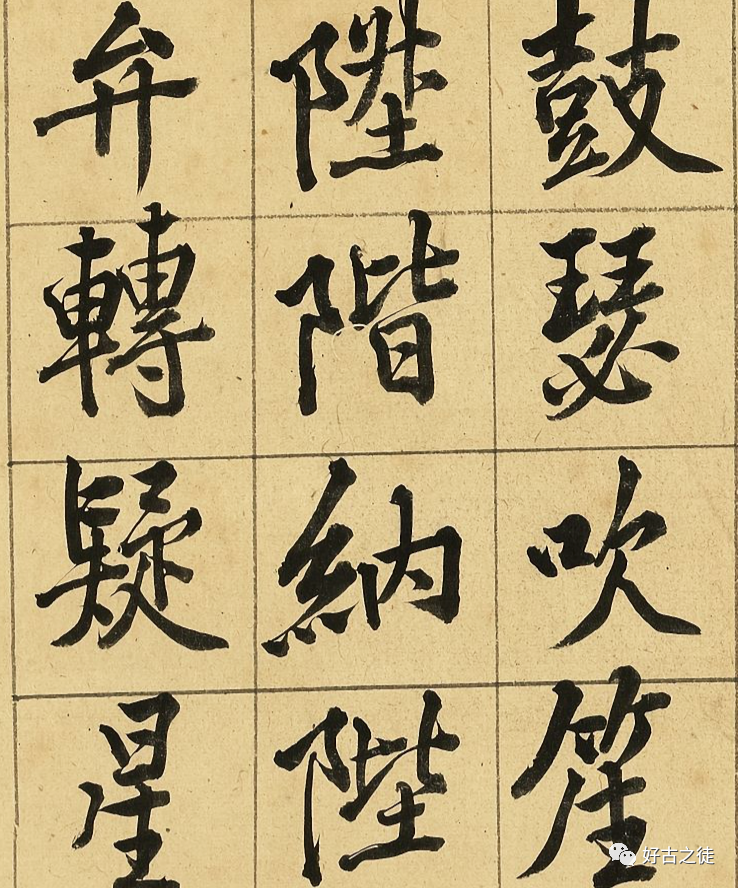 鼓瑟吹笙
陞階納陛
弁轉疑星
好古之徒